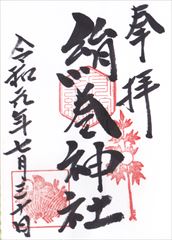 奉拝
絹巻神社
令和元年七月三十日